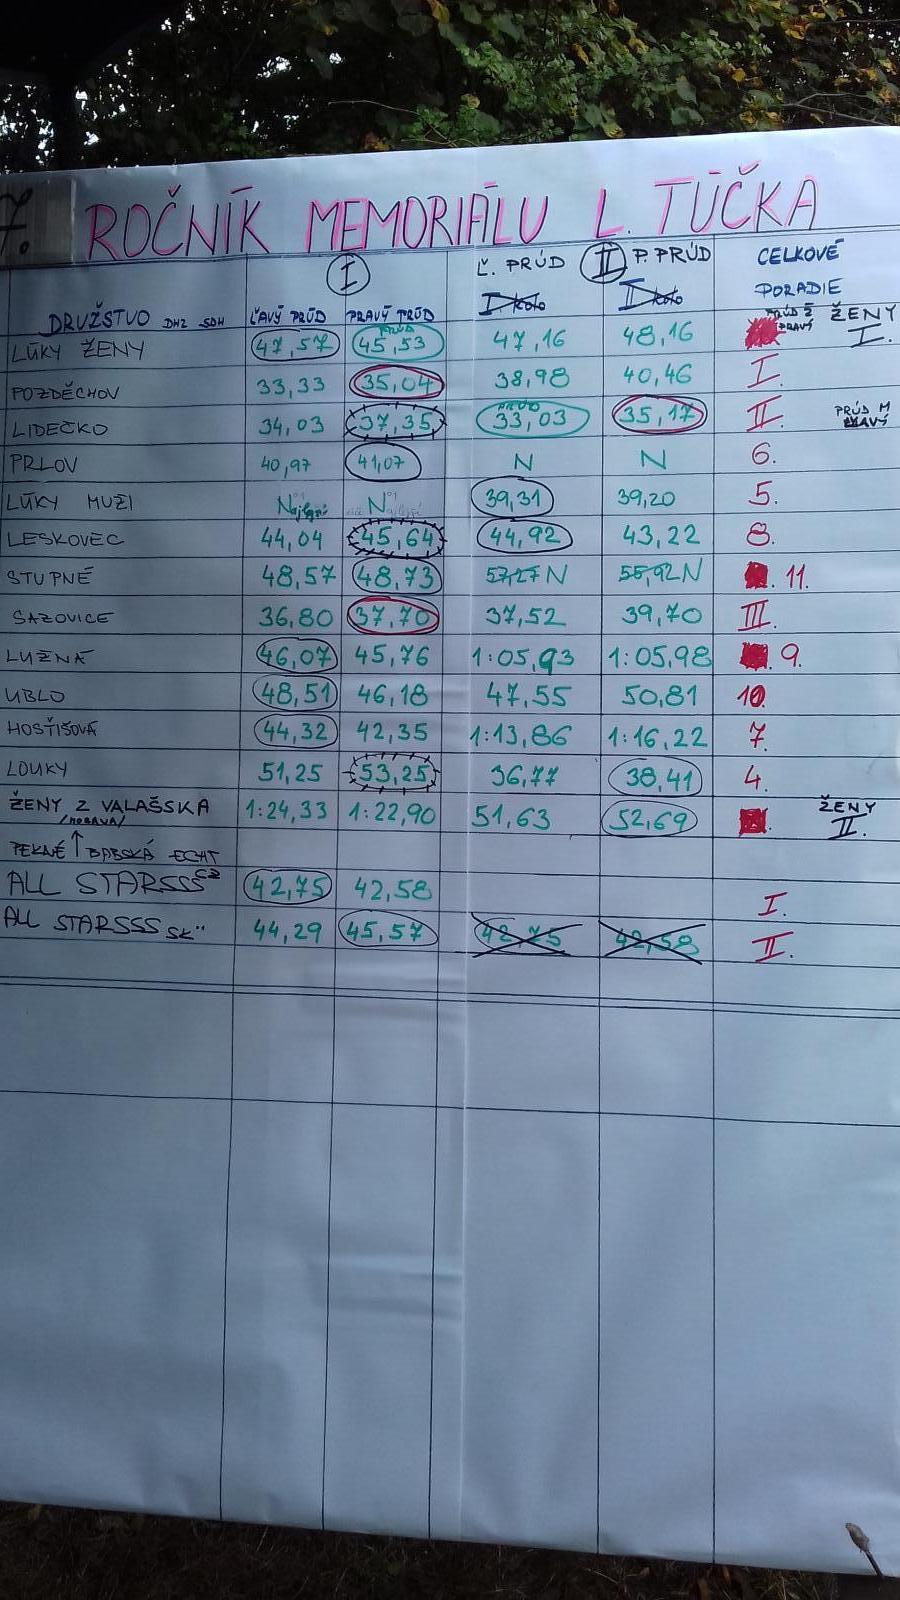 7. ROČNÍK MEMORIÁLU L. TÚČKA
I Ľ. PRÚD II P PRÚD CELKOVÉ
I kolo II kolo PORADIE
DRUŽSTVO DHZ SDH ĽAVÝ PRÚD PRAVÝ PRÚD PRÚD Ž PRAVÝ ŽENY
LÚKY ŽENY 47,57 PRÚD 45,53 47,16 48,16 I.
POZDĚCHOV 33,33 35,04 38,98 40,46 I.
LIDEČKO 34,03 37,35 PRÚD 33,03 35,17 II. PRÚD M ĽAVÝ
PRLOV 40,97 41,07 N N 6.
LÚKY MUŽI N N 39,31 39,20 5.
LESKOVEC 44,04 45,64 44,92 43,22 8.
STUPNÉ 48,57 48,73 57,27 N 55,92 N 11.
SAZOVICE 36,80 37,70 37,52 39,70 III.
LUŽNÁ 46,07 45,76 1:05,93 1:05,98 9.
UBLO 48,51 46,18 47,55 50,81 10.
HOŠŤIŠOVÁ 44,32 42,35 1:13,86 1:16,22 7.
LOUKY 51,25 53,25 36,77 38,41 4.
ŽENY Z VALAŠSKA 1:24,33 1:22,90 51,63 52,69 ŽENY II.
/MORAVA/
PEKNÉ ↑ BABSKÁ ECHT
ALL STARSSS CZ 42,75 42,58 I.
ALL STARSSS SK" 44,29 45,57 42,75 42,58 II.